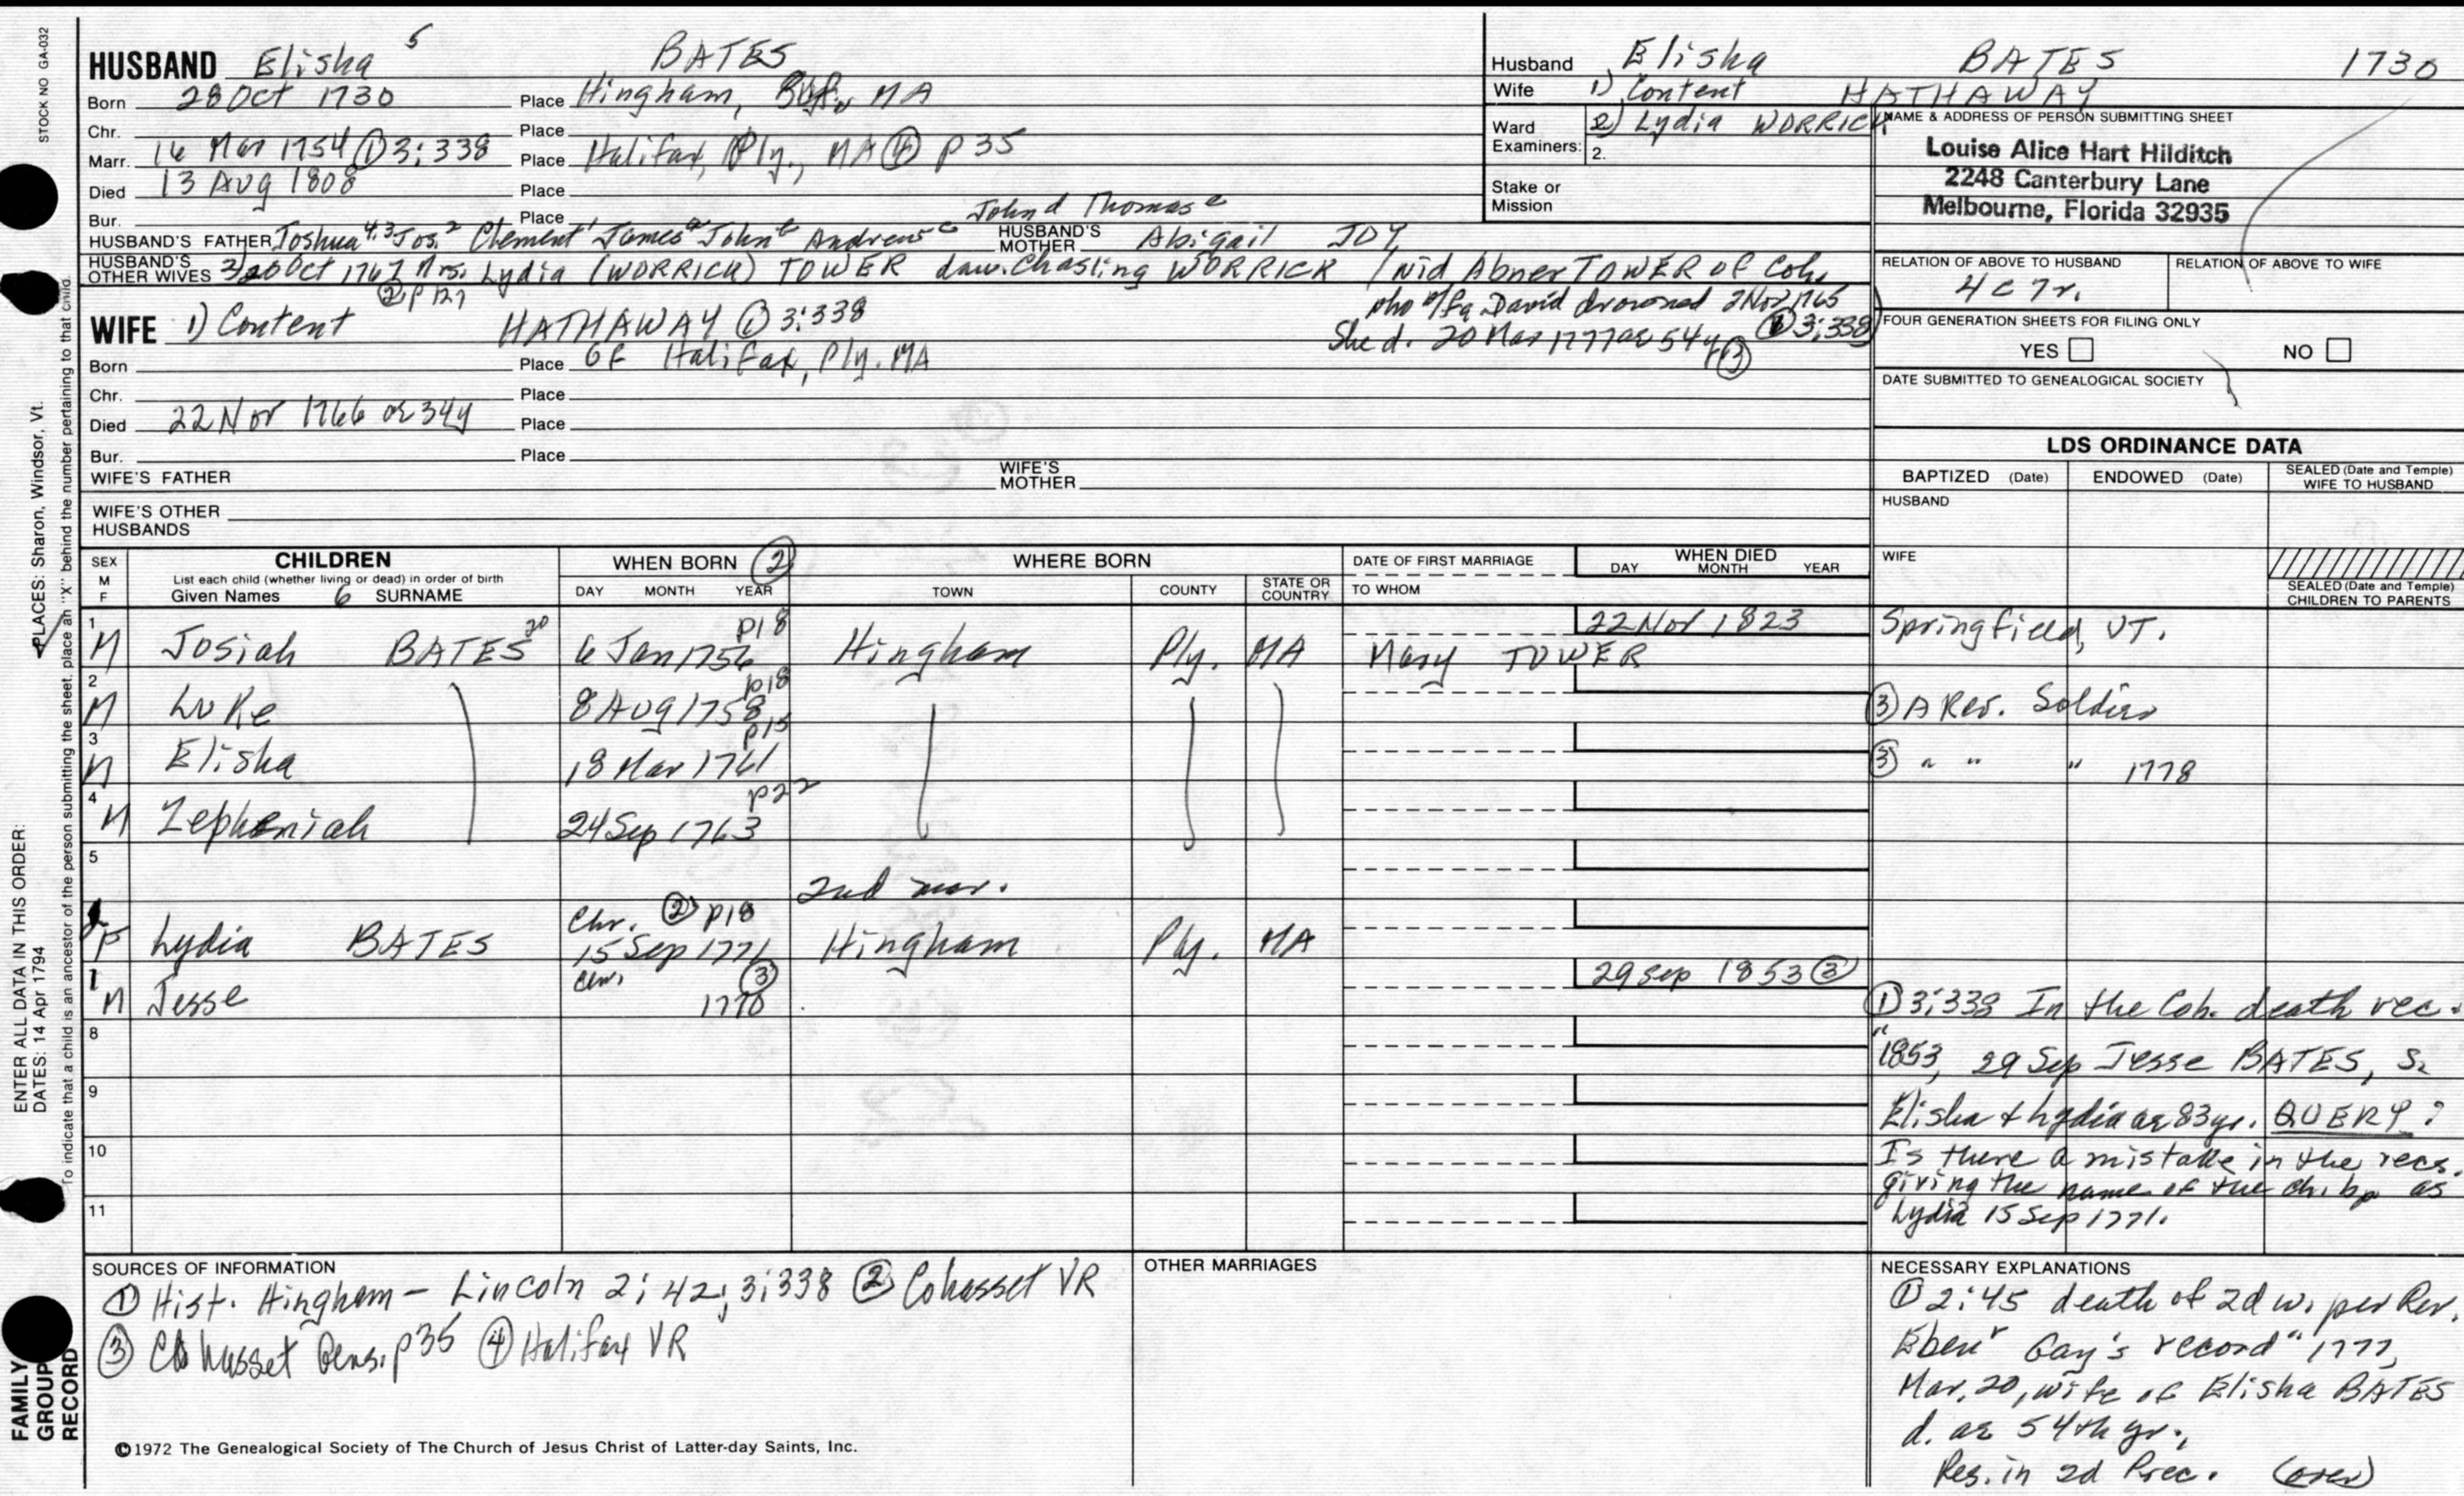 STOCK NO GA-032
HUSBAND Elisha 5 BATES
Born 28 Oct 1730 Place Hingham, MA
Chr. Place
Marr. 16 Mar 1754 ① 3:338 Place Halifax, Ply., MA ④ p35
Died 13 Aug 1808 Place
Bur. Place
John d Thomas e
HUSBAND'S FATHER Joshua 4, 3 Jos. 2 Clement 1 James a John b Andrew c HUSBAND'S MOTHER Abigail JOY
HUSBAND'S OTHER WIVES Oct 1767 Mrs. Lydia (WORRICK) TOWER dau. Chasling WORRICK / wid Abner TOWER of Coh.
② p 127
who w/fa David drowned 2 Nov 1765
① 3:338
She d. 20 Mar 1777 ae 54y ③
WIFE 1) Content HATHAWAY ① 3:338
Born Place of Halifax, Ply. MA
Chr. Place
Died 22 Nov 1766 ae 34y Place
Bur. Place
WIFE'S FATHER WIFE'S MOTHER
WIFE'S OTHER HUSBANDS
Husband Elisha BATES 1730
Wife 1) Content HATHAWAY
Ward Examiners: 2) Lydia WORRICK
2.
Stake or Mission
NAME & ADDRESS OF PERSON SUBMITTING SHEET
Louise Alice Hart Hilditch
2248 Canterbury Lane
Melbourne, Florida 32935
RELATION OF ABOVE TO HUSBAND RELATION OF ABOVE TO WIFE
4 c 7 r.
FOUR GENERATION SHEETS FOR FILING ONLY
YES NO
DATE SUBMITTED TO GENEALOGICAL SOCIETY
LDS ORDINANCE DATA
BAPTIZED (Date) ENDOWED (Date) SEALED (Date and Temple) WIFE TO HUSBAND
HUSBAND
WIFE
SEALED (Date and Temple) CHILDREN TO PARENTS
SEX M F CHILDREN WHEN BORN ② WHERE BORN DATE OF FIRST MARRIAGE WHEN DIED
List each child (whether living or dead) in order of birth
Given Names 6 SURNAME DAY MONTH YEAR TOWN COUNTY STATE OR COUNTRY TO WHOM DAY MONTH YEAR
1 M Josiah BATES 20 6 Jan 1756 p18 Hingham Ply. MA Mary TOWER 22 Nov 1823 Springfield, VT.
2 M Luke 8 Aug 1758 p18 ③ A Rev. Soldier
3 M Elisha 18 Mar 1761 p15 ③ " " " 1778
4 M Zepheniah 24 Sep 1763 p22
5
2nd mar.
F Lydia BATES Chr. ② p18 15 Sep 1771 Hingham Ply. MA
M Jesse ③ 1770 29 Sep 1853 ③
8
9
10
11
① 3:338 In the Coh. death rec.
"1853, 29 Sep Jesse BATES, s.
Elisha & Lydia ae 83 yr. QUERY?
Is there a mistake in the recs.
giving the name of the ch. bp as
Lydia 15 Sep 1771.
SOURCES OF INFORMATION
① Hist. Hingham - Lincoln 2:42; 3:338 ② Cohasset VR
③ Cohasset Gens. p35 ④ Halifax VR
OTHER MARRIAGES
NECESSARY EXPLANATIONS
① 2:45 death of 2d w. per Rev.
Ebenr Gay's record "1777,
Mar. 20, wife of Elisha BATES
d. ae 54th yr.,
Res. in 2d Prec. (over)
©1972 The Genealogical Society of The Church of Jesus Christ of Latter-day Saints, Inc.
PLACES: Sharon, Windsor, Vt.
ENTER ALL DATA IN THIS ORDER:
DATES: 14 Apr 1794
To indicate that a child is an ancestor of the person submitting the sheet, place an "X" behind the number pertaining to that child.
FAMILY GROUP RECORD